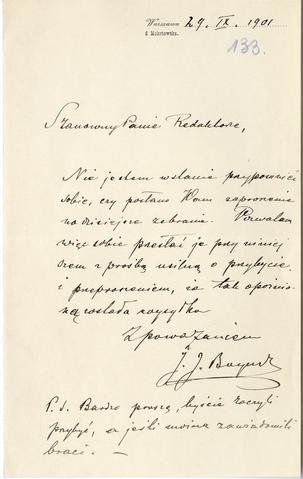 Warszawa 29. IX. 1901
6 Mokotowska.
133.
Szanowny Panie Redaktorze,
Nie jestem w stanie przypomnieć
sobie, czy posłano Wam zaproszenie
na dzisiejsze zebranie. Pozwalam
więc sobie przesłać je przy niniej
szem z prośbą usilną o przybycie
i przeproszeniem, za tak opóźnio
ną została wysyłka
Z poważaniem
J. J.
P. S. Bardzo proszę, byście raczyli
przybyć, a jeśli można zawiadomili
braci. —